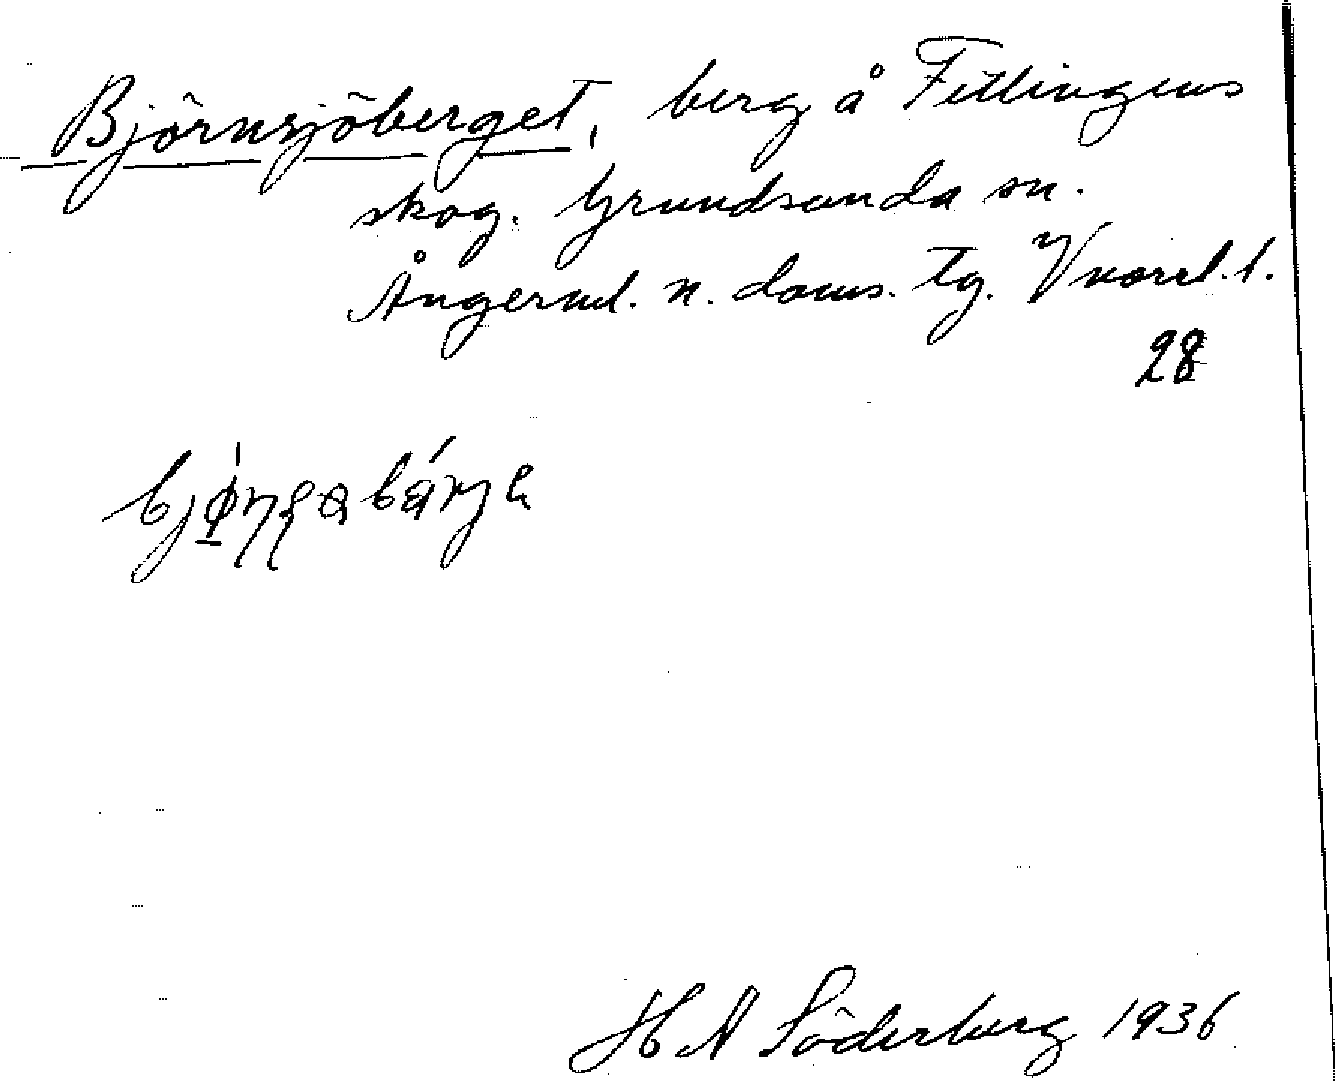 Björnsjöberget, berg å Fillingens
skog. Grundsunda sn.
Ångerml. n. doms. tg. Vnorrl. l.
28
H A Söderberg 1936